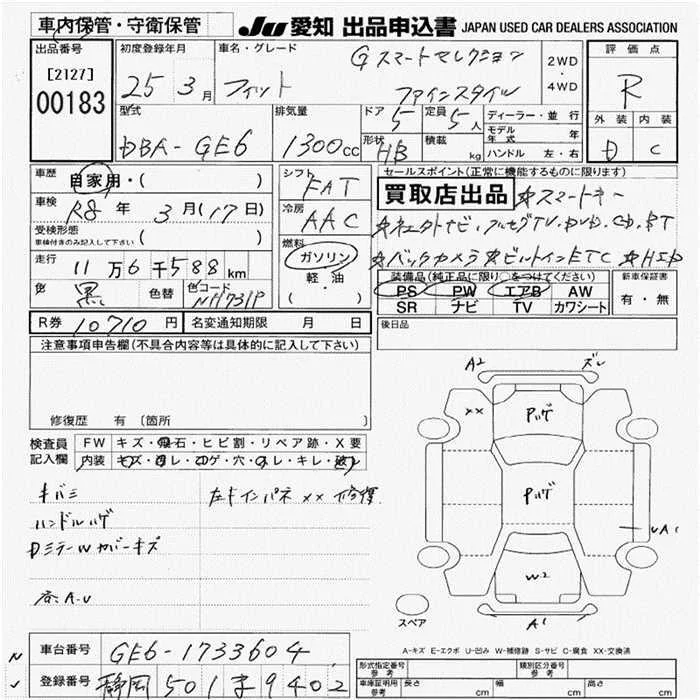 車内保管・守衛保管
JU 愛知 出品申込書 JAPAN USED CAR DEALERS ASSOCIATION
出品番号
[2127]
00183
初度登録年月
25 3月
車名・グレード
Gスマートセレクション
フィット ファインスタイル
2WD
・
4WD
評価点
R
外装 内装
D C
型式
DBA-GE6
排気量
1300cc
ドア
5
定員
5人
形状
HB
積載
kg
ディーラー・並行
モデル年式 年
ハンドル 左・右
車歴
自家用・( )
車検
R8年 3月(17日)
受検形態
車検付きのみ記入して下さい ( )
走行
11万6千588km
色 黒 色替 色コード NH731P
シフト
FAT
冷房
AAC
燃料
ガソリン
軽・油
( )
セールスポイント(正常に機能するものに限ります)
買取店出品 ☆スマートキー
☆バックカメラ ☆ビルトインETC ☆HID
装備品(純正品に限り○をつけてください)
PS PW エアB AW
SR ナビ TV カワシート
新車保証書
有・無
R券 10710円 名変通知期限 月 日
後日品
注意事項申告欄(不具合内容等は具体的に記入して下さい)
修復歴 有 〔箇所
検査員
記入欄
FW キズ・飛石・ヒビ割・リペア跡・X要
内装
キバミ
ハンドルハゲ
DミラーWカバーキズ
左ドインパネ ×× 修復
A2
ズレ
××
Pハゲ
Pハゲ
W2
UA1
A1
スペア
A-キズ E-エクボ U-凹み W-補修跡 S-サビ C-腐食 XX-交換済
車台番号 GE6-1733604
登録番号 静岡 501 ま 9402
形式指定番号
参考
類別区分番号
参考
車庫証明用
参考
長さ cm 幅 cm 高さ cm